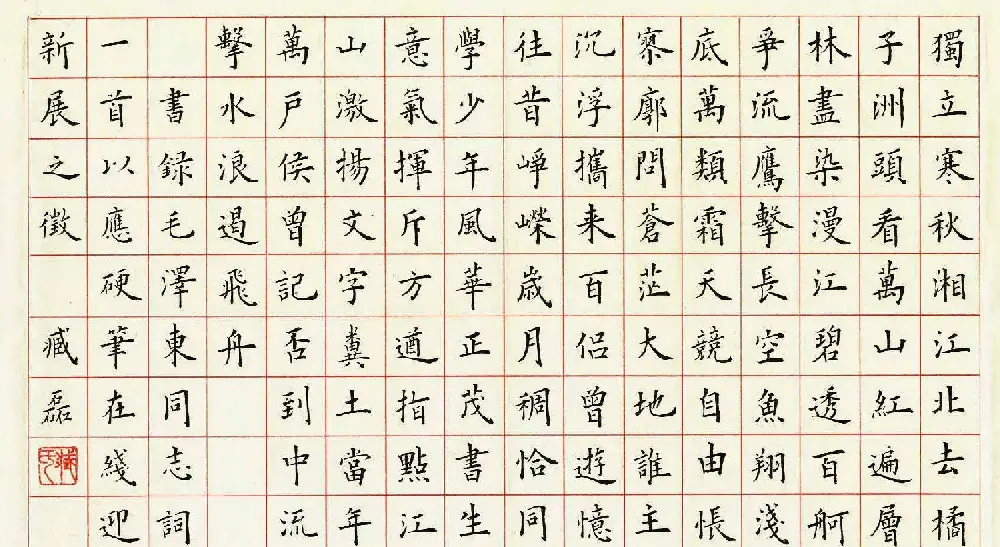 獨立寒秋湘江北去橘
子洲頭看萬山紅遍層
林盡染漫江碧透百舸
爭流鷹擊長空魚翔淺
底萬類霜天競自由悵
寥廓問蒼茫大地誰主
沉浮攜来百侶曾遊憶
往昔崢嶸歲月稠恰同
學少年風華正茂書生
意氣揮斥方遒指點江
山激揚文字糞土當年
萬戶侯曾記否到中流
擊水浪遏飛舟
書録毛澤東同志詞
一首以應硬筆在綫迎
新展之徵 臧磊